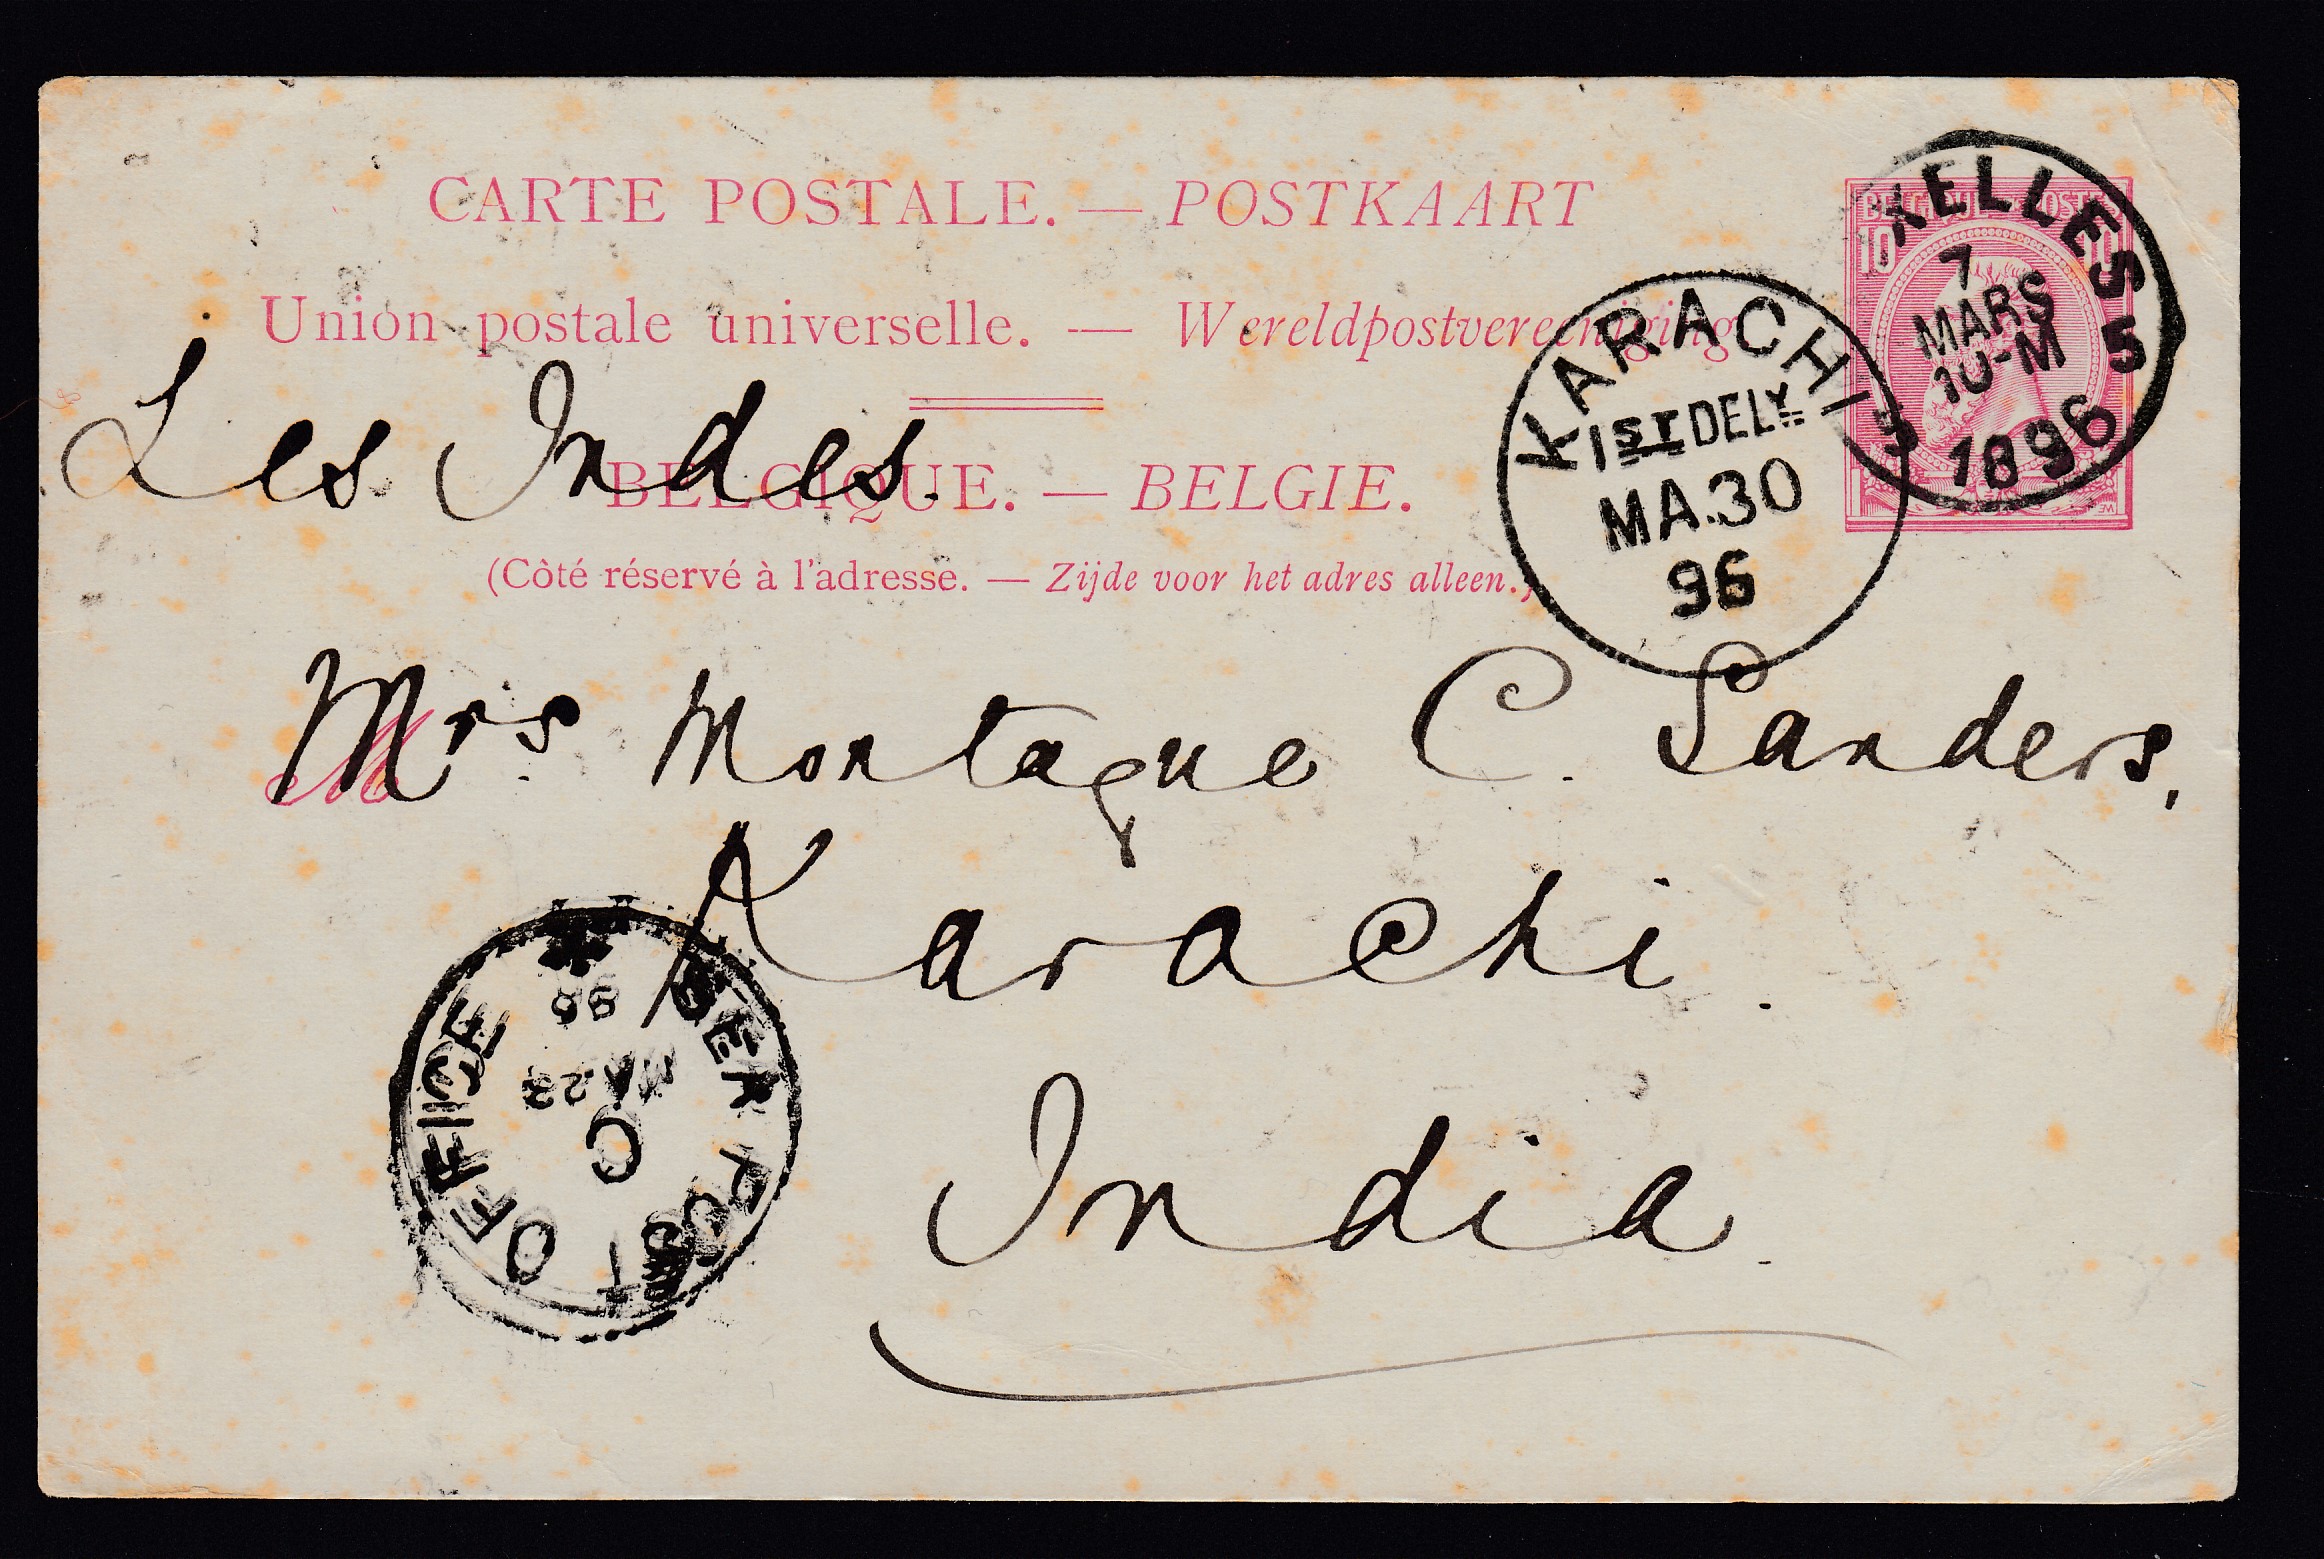 CARTE POSTALE. — POSTKAART
Union postale universelle. — Wereldpostvereeniging
BELGIQUE. — BELGIE.
(Côté réservé à l'adresse. — Zijde voor het adres alleen.)
10
XELLES
7
MARS
10-M
5
1896
KARACHI
1ST DELY.
MA.30
96
Les Indes.
Mrs Montague C. Sanders,
Karachi.
India.
POST OFFICE
C
96